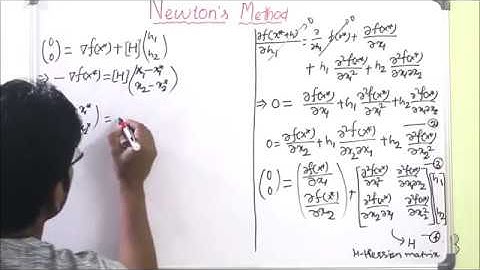 Newton's Method
(0 0) = ∇f(x*) + [H] (h₁ h₂)
⇒ -∇f(x*) = [H] (x₁-x₁* x₂-x₂*)
) =
∂f(x*+h)/∂h₁ = ∂/∂h₁ f(x*)⁰ + ∂f(x*)/∂x₁
+ h₁ ∂²f(x*)/∂x₁² + h₂ ∂²f(x*)/∂x₁∂x₂
⇒ 0 = ∂f(x*)/∂x₁ + h₁ ∂²f(x*)/∂x₁² + h₂ ∂²f(x*)/∂x₁∂x₂
0 = ∂f(x*)/∂x₂ + h₁ ∂²f(x*)/∂x₂∂x₁ + h₂ ∂²f(x*)/∂x₂²
(0 0) = (∂f(x*)/∂x₁ ∂f(x*)/∂x₂) + [∂²f(x*)/∂x₁² ∂²f(x*)/∂x₁∂x₂ ∂²f(x*)/∂x₂∂x₁ ∂²f(x*)/∂x₂²] [h₁ h₂]
→ H
H-Hessian matrix